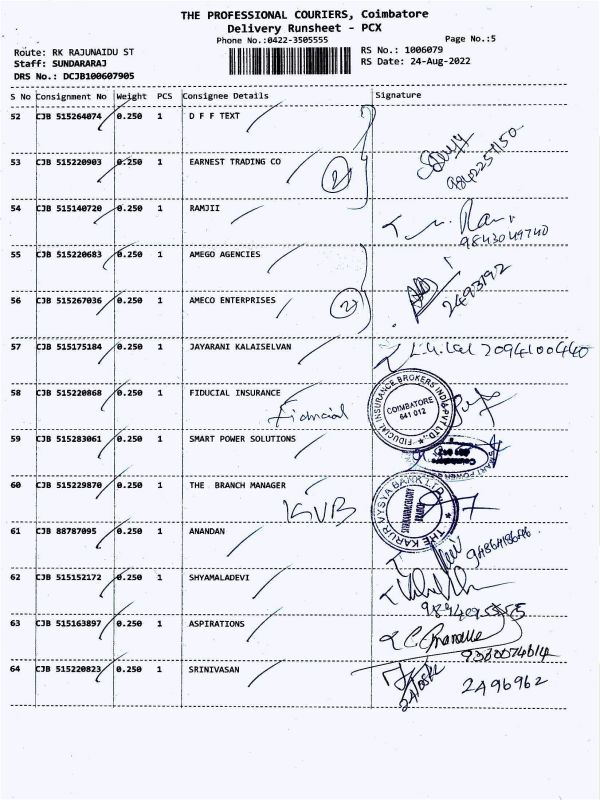 THE PROFESSIONAL COURIERS, Coimbatore
Delivery Runsheet - PCX
Phone No.:0422-3505555 Page No.:5
Route: RK RAJUNAIDU ST RS No.: 1006079
Staff: SUNDARARAJ RS Date: 24-Aug-2022
DRS No.: DCJB100607905
S No Consignment No Weight PCS Consignee Details Signature
52 CJB 515264074 0.250 1 D F F TEXT
53 CJB 515220903 0.250 1 EARNEST TRADING CO 2
54 CJB 515140720 0.250 1 RAMJII
9843049740
55 CJB 515220683 0.250 1 AMEGO AGENCIES
56 CJB 515267036 0.250 1 AMECO ENTERPRISES 2 2493192
57 CJB 515175184 0.250 1 JAYARANI KALAISELVAN
58 CJB 515220868 0.250 1 FIDUCIAL INSURANCE
Fiducial
FIDUCIAL INSURANCE BROKERS INDIA PVT LTD.,
COIMBATORE
641 012
59 CJB 515283061 0.250 1 SMART POWER SOLUTIONS
60 CJB 515229870 0.250 1 THE BRANCH MANAGER
KVB
THE KARUR VYSYA BANK LTD.
61 CJB 88787095 0.250 1 ANANDAN
62 CJB 515152172 0.250 1 SHYAMALADEVI
63 CJB 515163897 0.250 1 ASPIRATIONS
64 CJB 515220823 0.250 1 SRINIVASAN
2496962